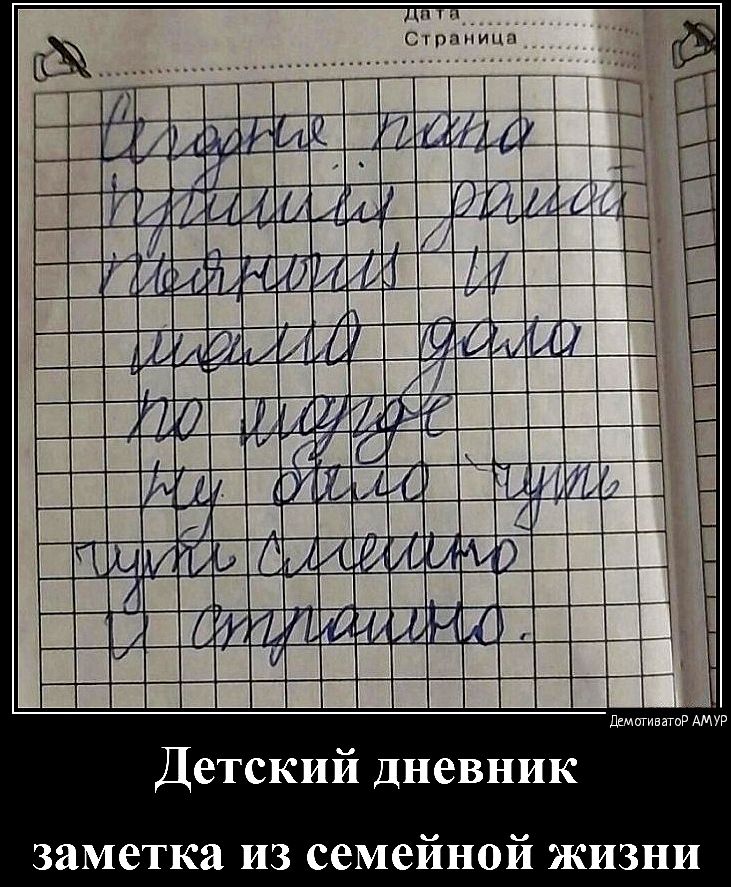 Дата
Страница
Сегодня папа
пришёл домой
пьяный и
мама дала
по морде
Ну было чуть
чуть смешно
и страшно.
ДемотиватоР АМУР
Детский дневник
заметка из семейной жизни